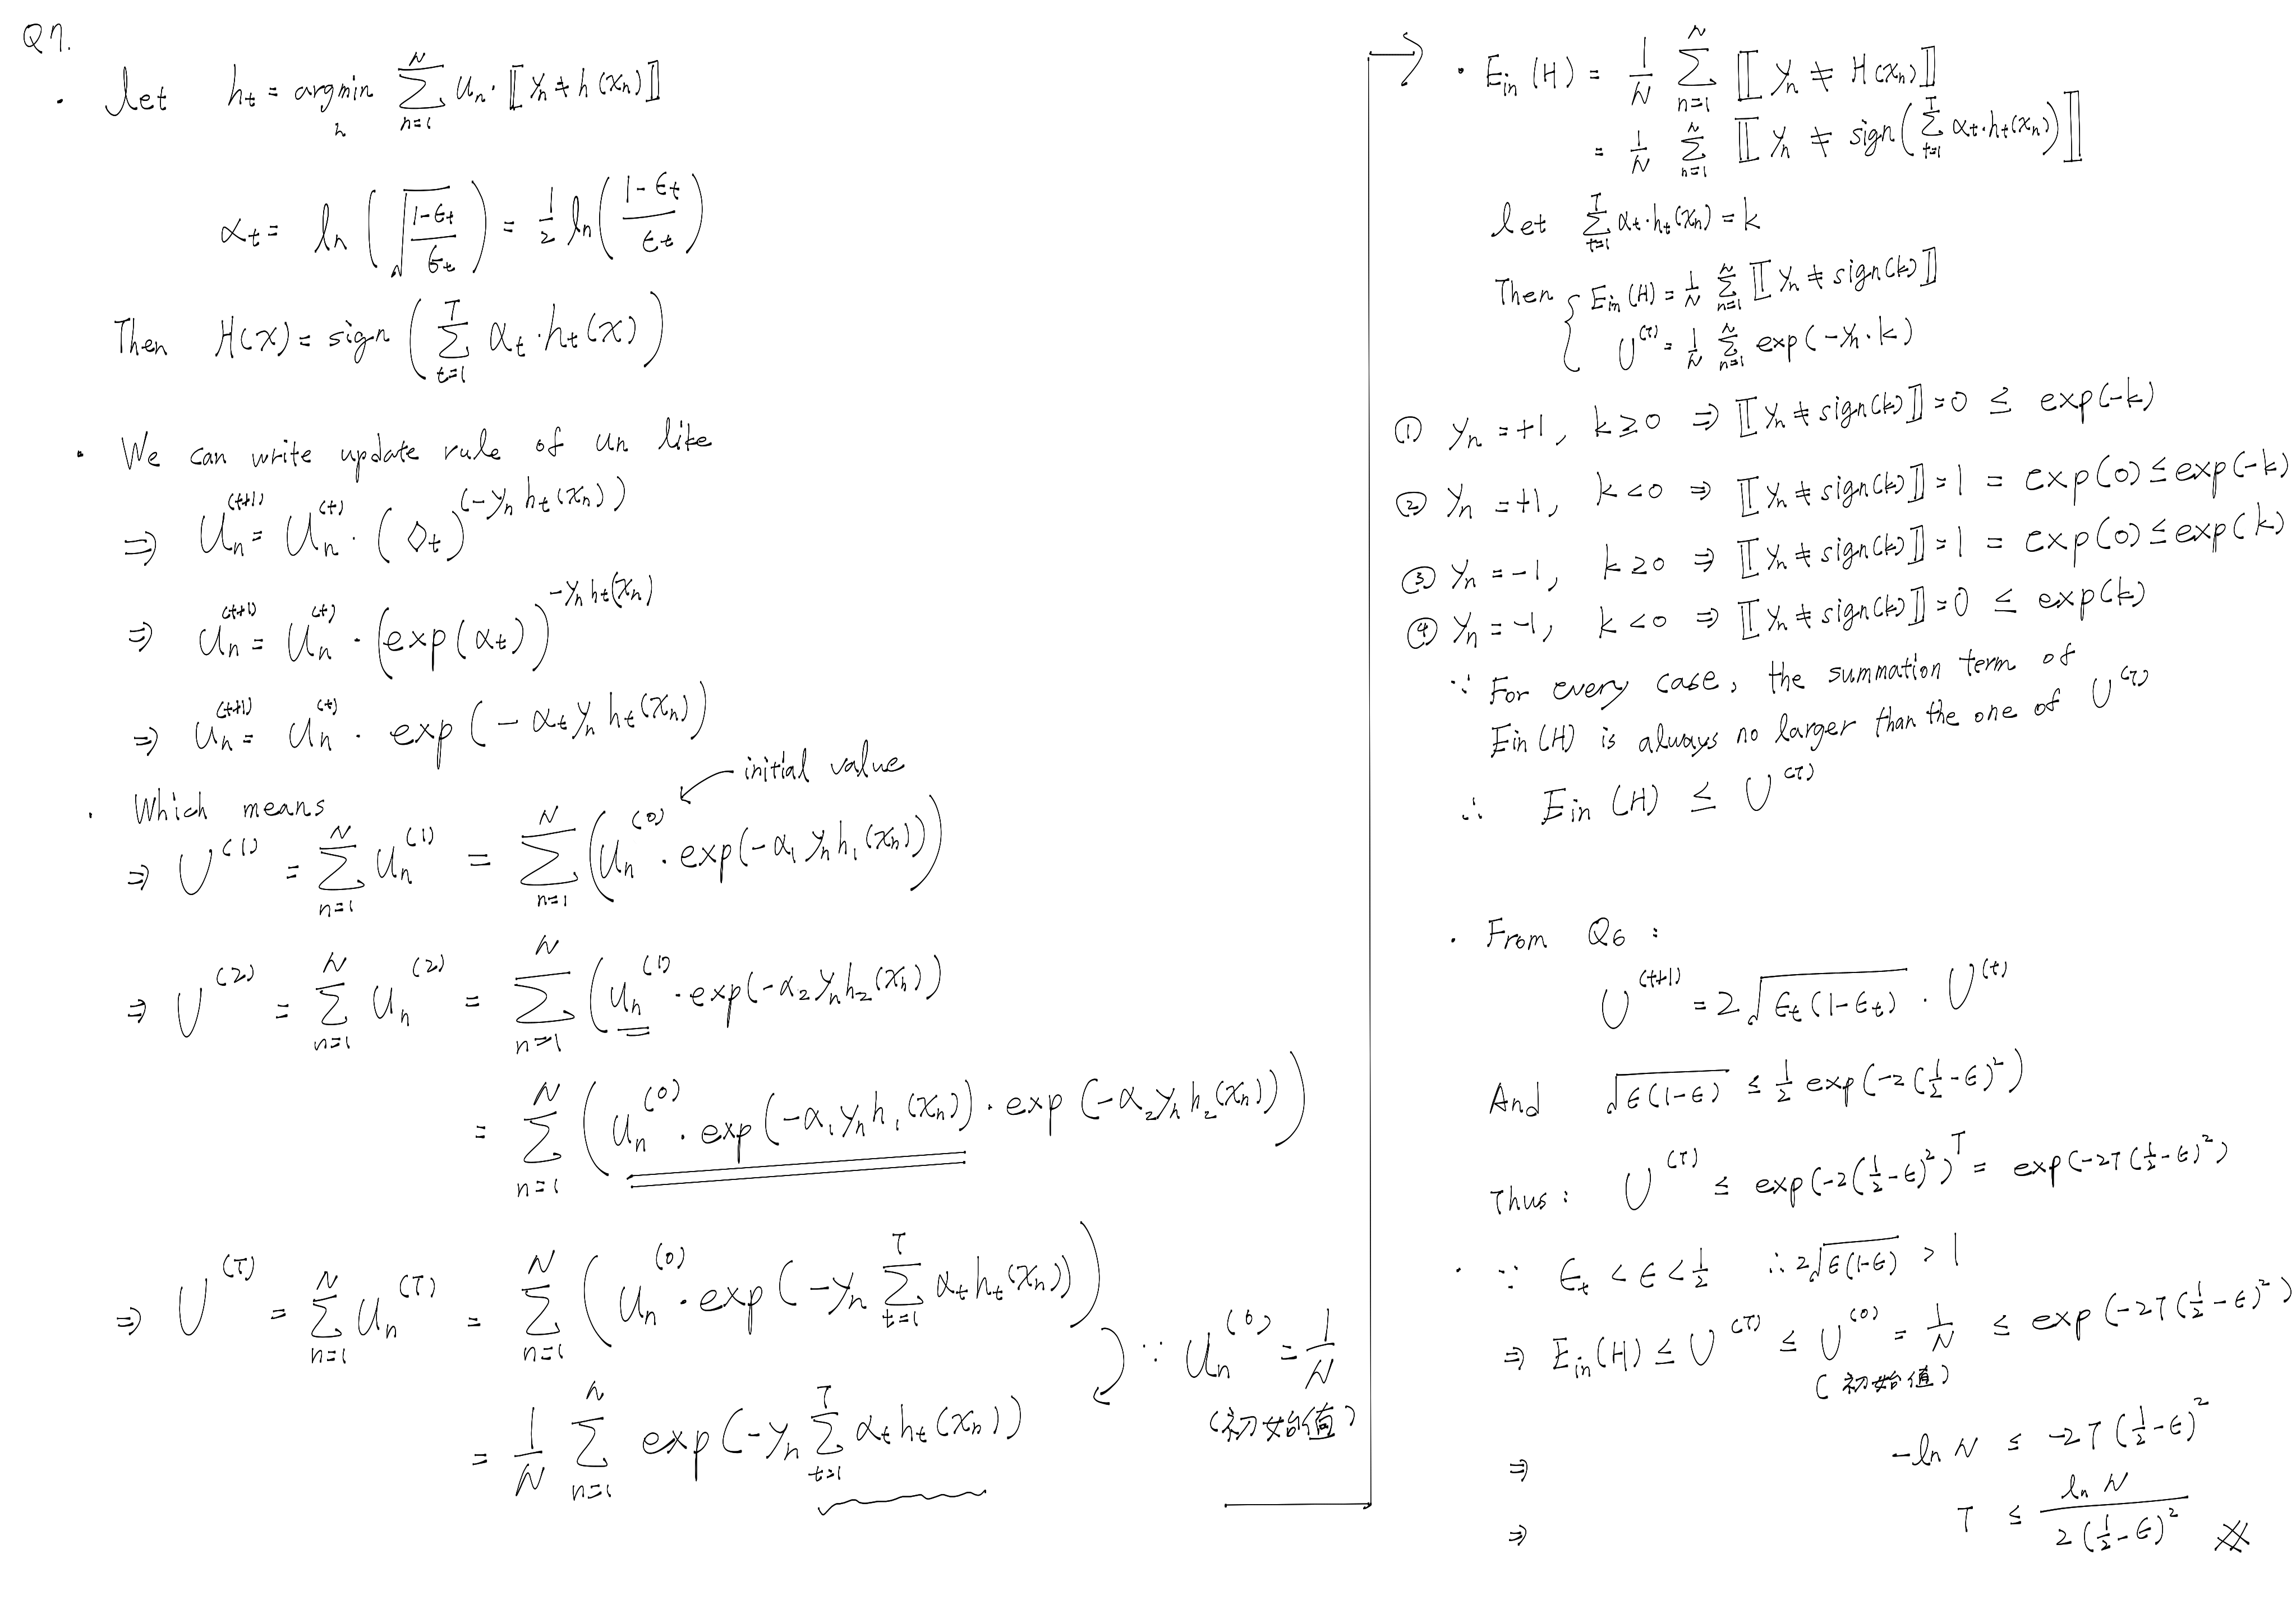 Q7.
· let h_t = argmin_h Σ_{n=1}^{N} u_n · ⟦y_n ≠ h(x_n)⟧
α_t = ln(√((1-ε_t)/ε_t)) = 1/2 ln((1-ε_t)/ε_t)
Then H(x) = sign(Σ_{t=1}^{T} α_t · h_t(x))
· We can write update rule of u_n like
⇒ u_n^{(t+1)} = u_n^{(t)} · (◇_t)^{(-y_n h_t(x_n))}
⇒ u_n^{(t+1)} = u_n^{(t)} · (exp(α_t))^{-y_n h_t(x_n)}
⇒ u_n^{(t+1)} = u_n^{(t)} · exp(-α_t y_n h_t(x_n))
initial value
· Which means
⇒ U^{(1)} = Σ_{n=1}^{N} u_n^{(1)} = Σ_{n=1}^{N} (u_n^{(0)} · exp(-α_1 y_n h_1(x_n)))
⇒ U^{(2)} = Σ_{n=1}^{N} u_n^{(2)} = Σ_{n=1}^{N} (u_n^{(1)} · exp(-α_2 y_n h_2(x_n))
= Σ_{n=1}^{N} (u_n^{(0)} · exp(-α_1 y_n h_1(x_n)) · exp(-α_2 y_n h_2(x_n)))
⇒ U^{(T)} = Σ_{n=1}^{N} u_n^{(T)} = Σ_{n=1}^{N} (u_n^{(0)} · exp(-y_n Σ_{t=1}^{T} α_t h_t(x_n)))
∵ u_n^{(0)} = 1/N
(初始值)
= 1/N Σ_{n=1}^{N} exp(-y_n Σ_{t=1}^{T} α_t h_t(x_n))
· E_in(H) = 1/N Σ_{n=1}^{N} ⟦y_n ≠ H(x_n)⟧
= 1/N Σ_{n=1}^{N} ⟦y_n ≠ sign(Σ_{t=1}^{T} α_t · h_t(x_n))⟧
let Σ_{t=1}^{T} α_t · h_t(x_n) = k
Then { E_in(H) = 1/N Σ_{n=1}^{N} ⟦y_n ≠ sign(k)⟧
U^{(T)} = 1/N Σ_{n=1}^{N} exp(-y_n · k)
① y_n = +1, k ≥ 0 ⇒ ⟦y_n ≠ sign(k)⟧ = 0 ≤ exp(-k)
② y_n = +1, k < 0 ⇒ ⟦y_n ≠ sign(k)⟧ = 1 = exp(0) ≤ exp(-k)
③ y_n = -1, k ≥ 0 ⇒ ⟦y_n ≠ sign(k)⟧ = 1 = exp(0) ≤ exp(k)
④ y_n = -1, k < 0 ⇒ ⟦y_n ≠ sign(k)⟧ = 0 ≤ exp(k)
∵ For every case, the summation term of
Ein(H) is always no larger than the one of U^{(T)}
∴ Ein(H) ≤ U^{(T)}
· From Q6 :
U^{(t+1)} = 2√(ε_t(1-ε_t)) · U^{(t)}
And √(ε(1-ε)) ≤ 1/2 exp(-2(1/2-ε)^2)
Thus : U^{(T)} ≤ exp(-2(1/2-ε)^2)^T = exp(-2T(1/2-ε)^2)
· ∵ ε_t < ε < 1/2 ∴ 2√(ε(1-ε)) > 1
⇒ E_in(H) ≤ U^{(T)} ≤ U^{(0)} = 1/N ≤ exp(-2T(1/2-ε)^2)
(初始值)
⇒ -ln N ≤ -2T(1/2-ε)^2
⇒ T ≤ ln N / 2(1/2-ε)^2